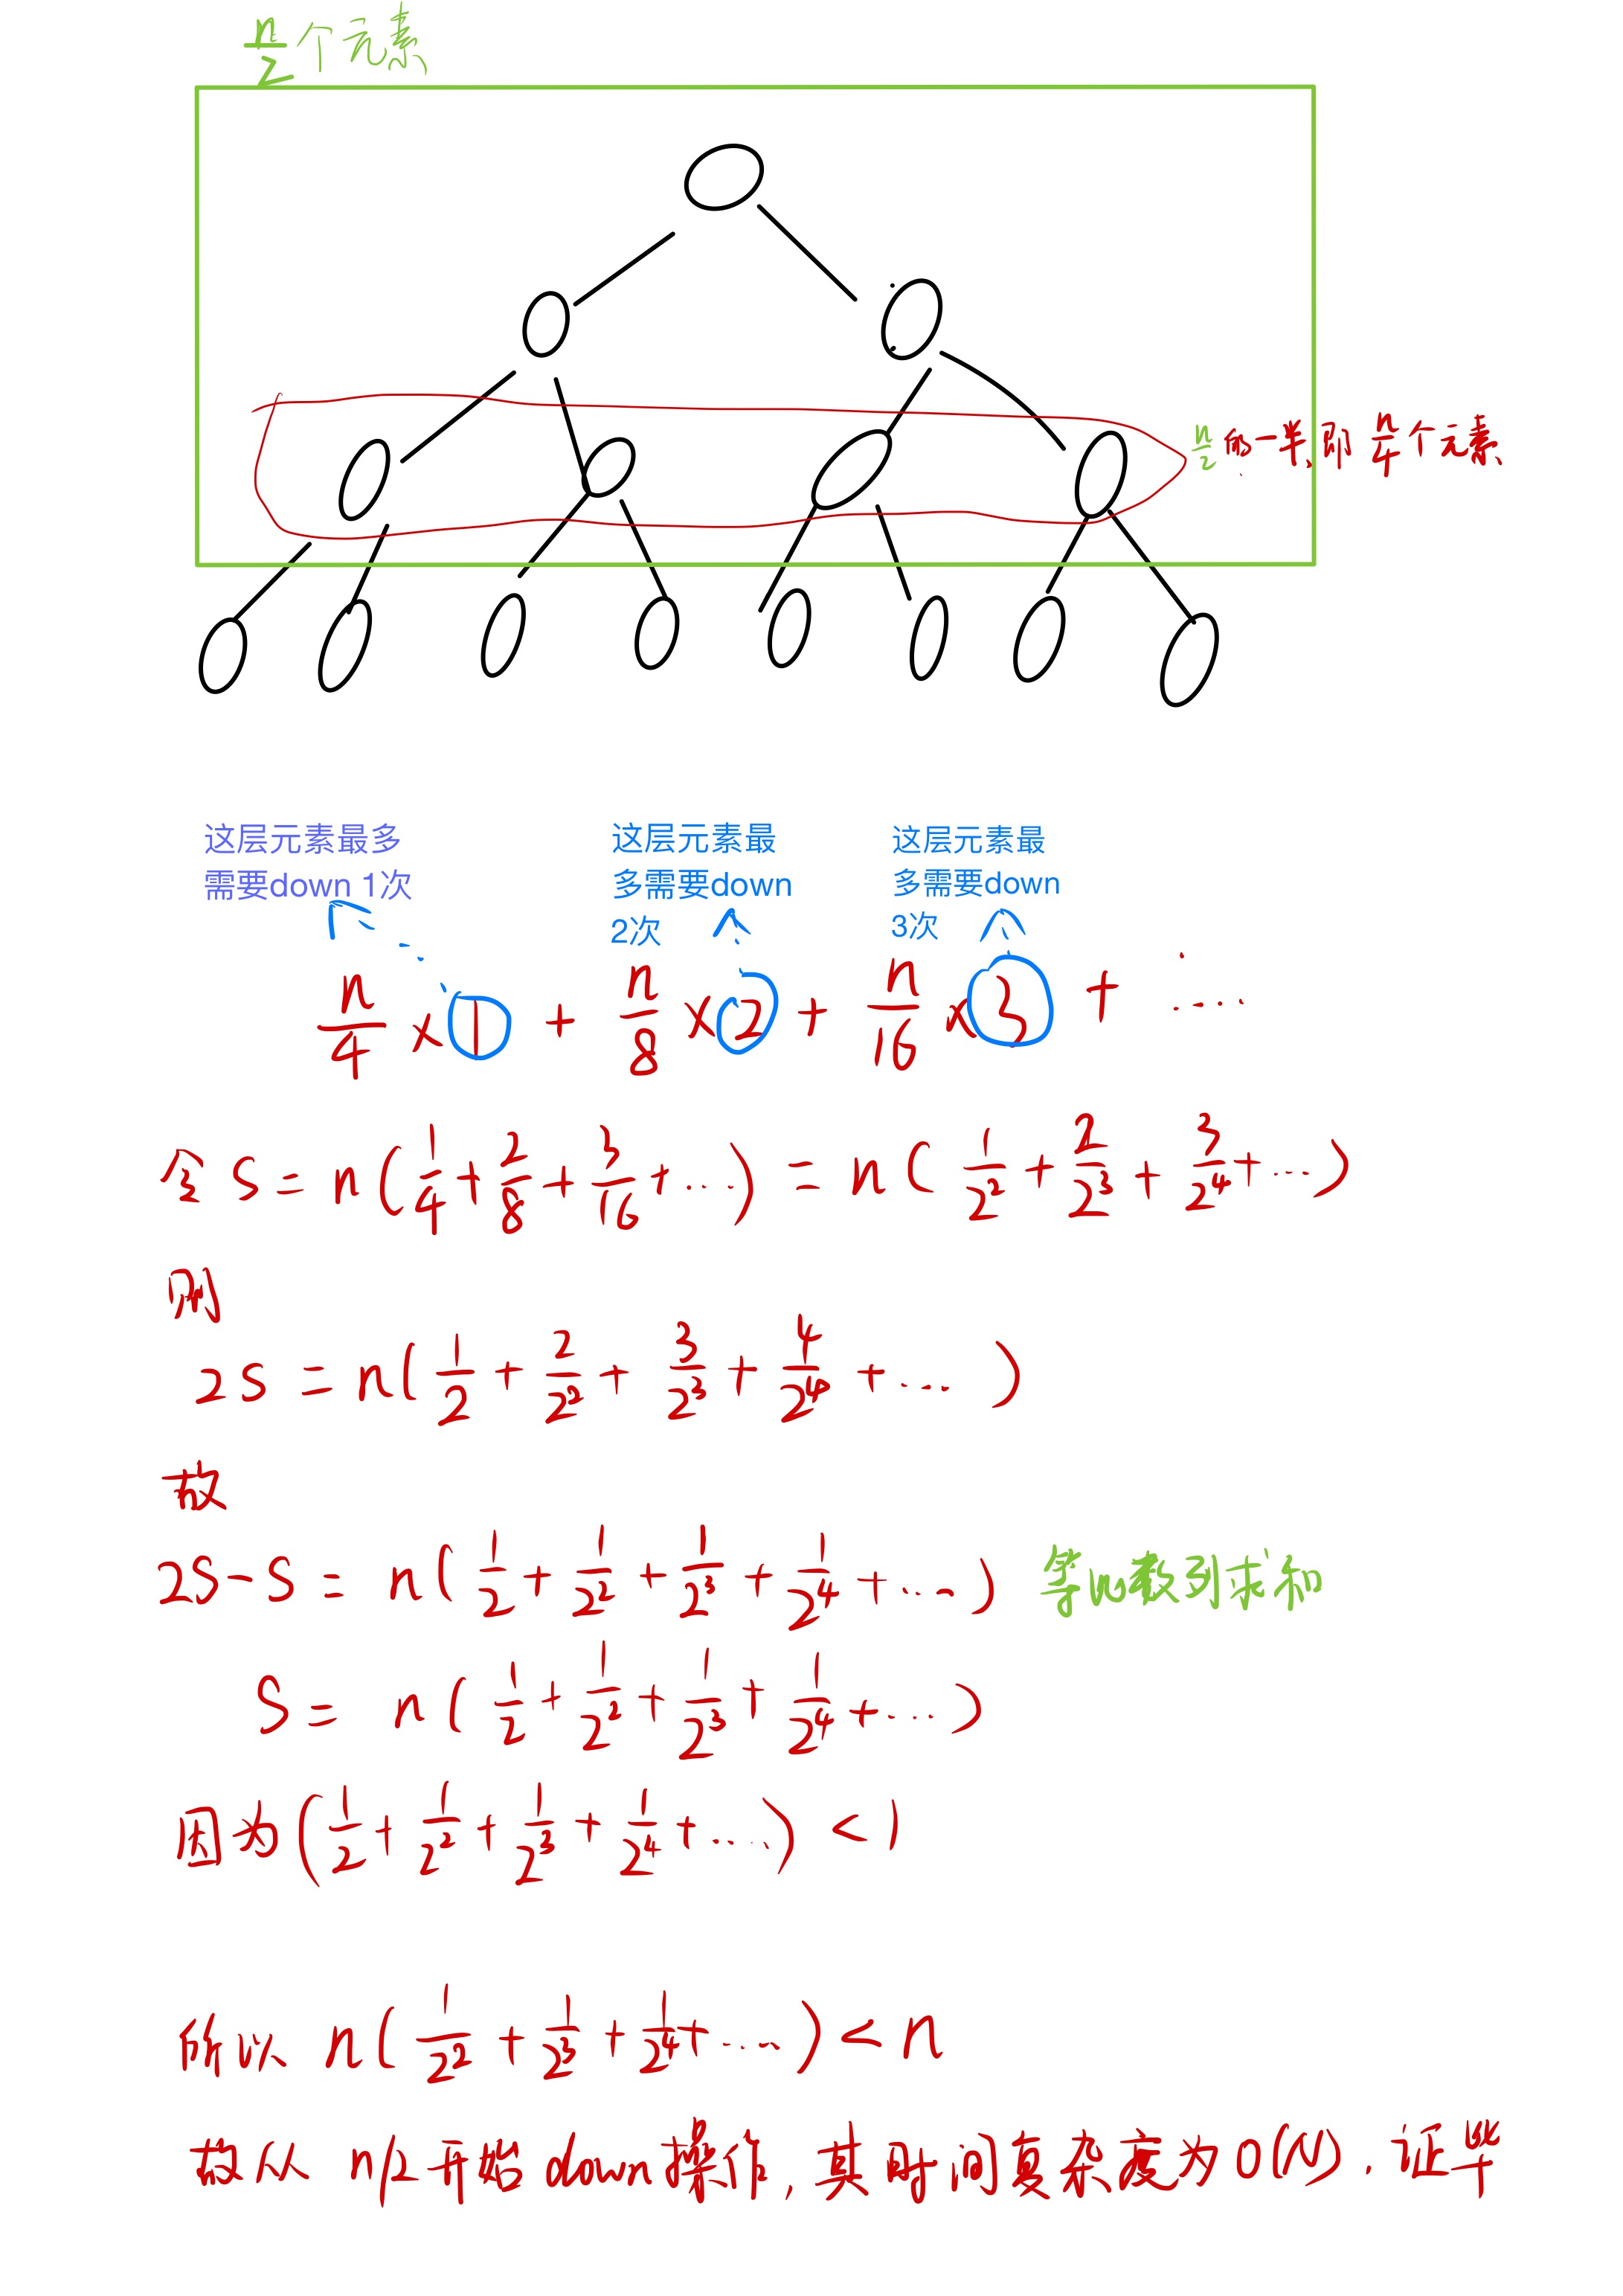 n/2个元素
n/2的一半,即 n/4个元素
这层元素最多
需要down 1次
这层元素最
多需要down
2次
这层元素最
多需要down
3次
n/4 × 1 + n/8 × 2 + n/16 × 3 + ....
令 S = n(1/4 + 2/8 + 3/16 + ...) = n(1/2² + 2/2³ + 3/2⁴ + ...)
则
2S = n(1/2 + 2/2² + 3/2³ + 4/2⁴ + ...)
故
2S - S = n(1/2 + 1/2² + 1/2³ + 1/2⁴ + ...) 等比数列求和
S = n(1/2 + 1/2² + 1/2³ + 1/2⁴ + ...)
因为(1/2 + 1/2² + 1/2³ + 1/2⁴ + ....) < 1
所以 n(1/2² + 1/2³ + 1/2⁴ + ....) < n
故从 n/2开始down操作,其时间复杂度为O(N).证毕